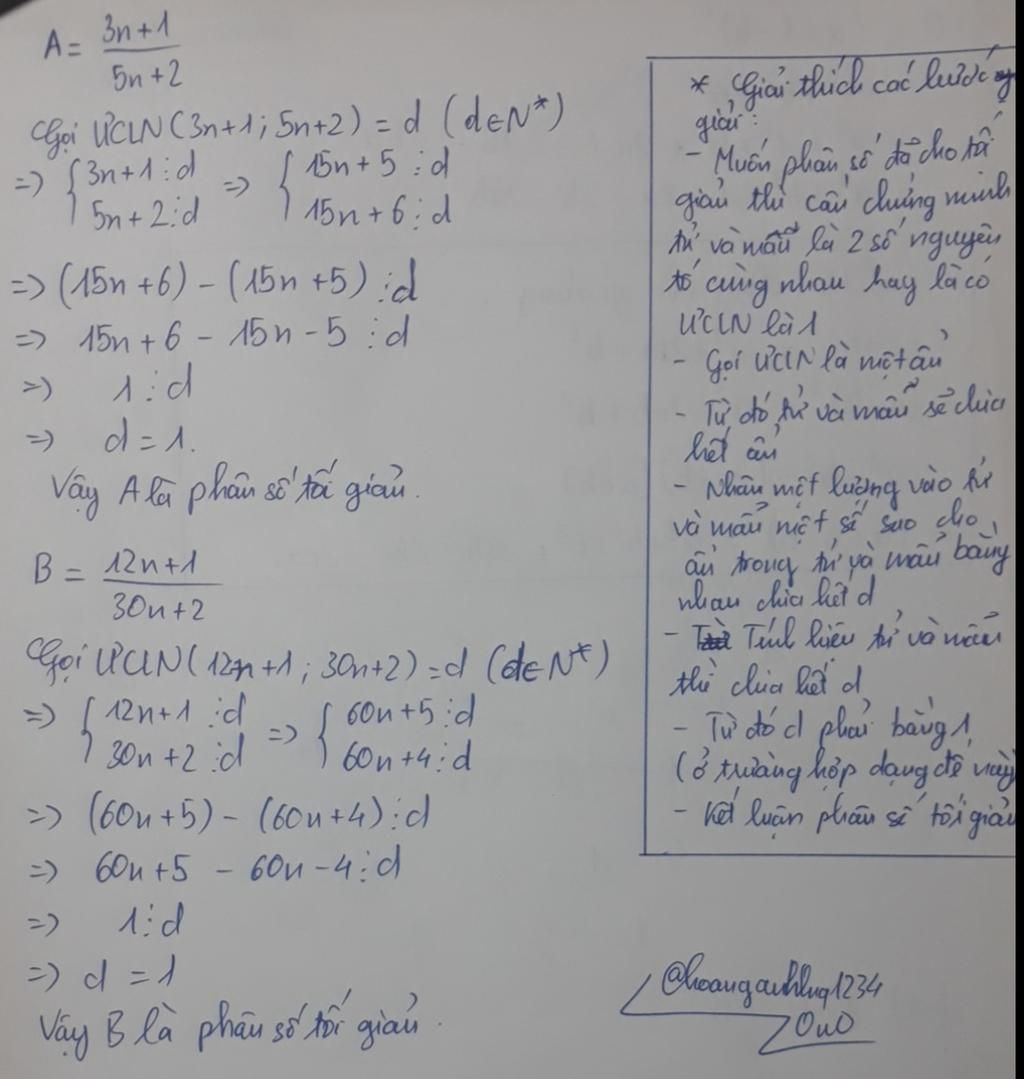 A = \frac{3n+1}{5n+2}
Gọi ƯCLN(3n+1; 5n+2) = d (d∈N*)
=> { 3n+1 ⋮ d => { 15n+5 ⋮ d
5n+2 ⋮ d 15n+6 ⋮ d
=> (15n+6) - (15n+5) ⋮ d
=> 15n+6 - 15n-5 ⋮ d
=> 1 ⋮ d
=> d = 1.
Vậy A là phân số tối giản.
B = \frac{12n+1}{30n+2}
Gọi ƯCLN(12n+1; 30n+2) = d (d∈N*)
=> { 12n+1 ⋮ d => { 60n+5 ⋮ d
30n+2 ⋮ d 60n+4 ⋮ d
=> (60n+5) - (60n+4) ⋮ d
=> 60n+5 - 60n-4 ⋮ d
=> 1 ⋮ d
=> d = 1
Vậy B là phân số tối giản.
* Giải thích các bước
giải:
- Muốn phân số đã cho tối
giản thì cần chứng minh
tử và mẫu là 2 số nguyên
tố cùng nhau hay là có
ƯCLN là 1
- Gọi ƯCLN là một ẩn
- Từ đó tử và mẫu sẽ chia
hết ẩn
- Nhân một lượng vào tử
và mẫu một số sao cho
ẩn trong tử và mẫu bằng
nhau chia hết d
- Tính hiệu tử và mẫu
thì chia hết d
- Từ đó d phải bằng 1
(ở trường hợp dạng đề này)
- Kết luận phân số tối giản
OuO